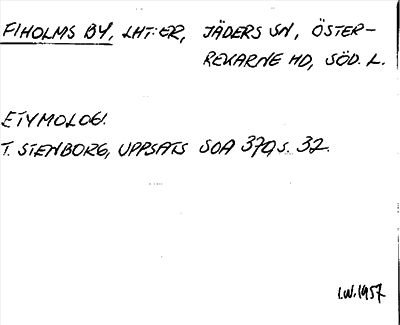 FIHOLMS BY, LHT:ER, JÄDERS SN, ÖSTER-
REKARNE HD, SÖD. L.
ETYMOLOGI.
T. STENBORG, UPPSATS SOA 370, S. 32.
I.W. 1957